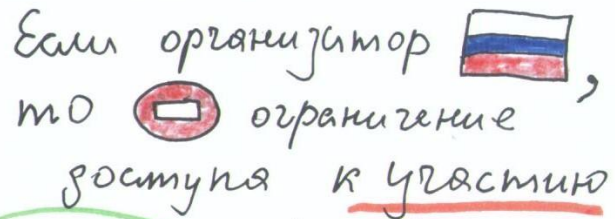 Если организатор ,
то ограничение
доступа к участию